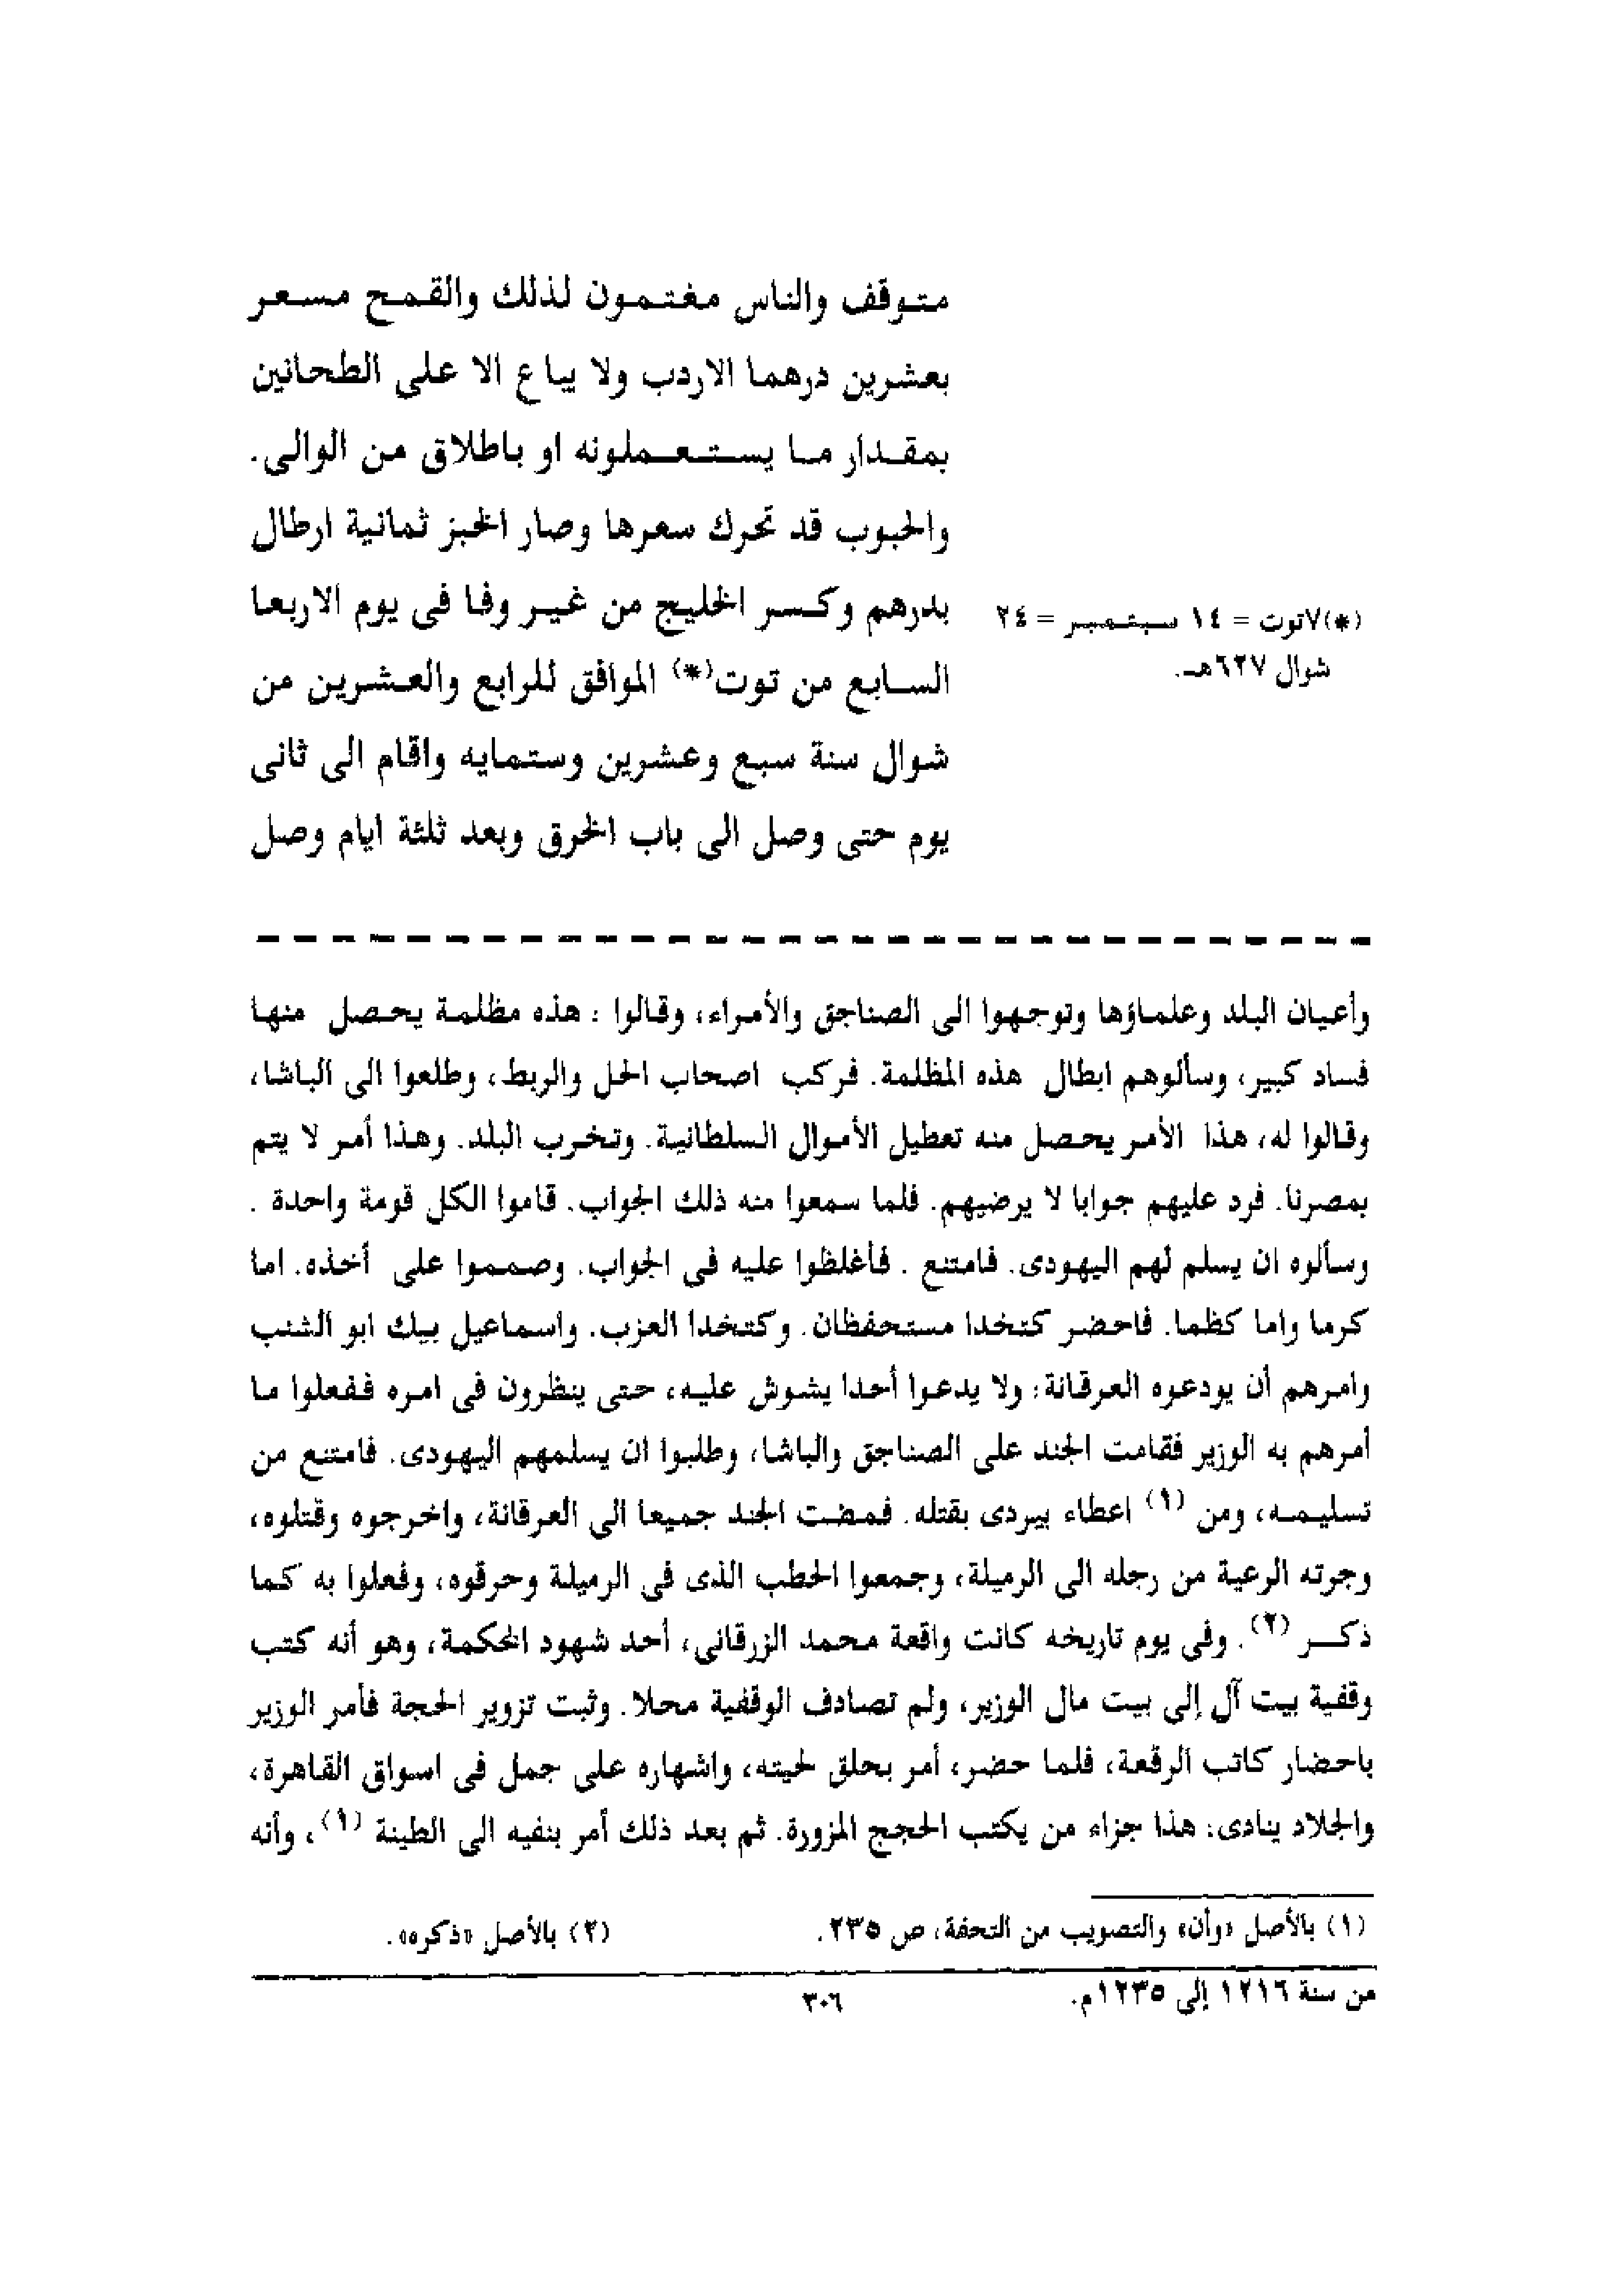 متوقف والناس مغتمون لذلك والقمح مسعر
بعشرين درهما الاردب ولا يباع الا على الطحانين
بمقدار ما يستعملونه او باطلاق من الوالى.
والحبوب قد تحرك سعرها وصار الخبز ثمانية ارطال
بدرهم وكسر الخليج من غير وفا فى يوم الاربعا
السابع من توت(*) الموافق للرابع والعشرين من
شوال سنة سبع وعشرين وستمايه واقام الى ثانى
يوم حتى وصل الى باب الخرق وبعد ثلثة ايام وصل
(*)٧توت = ١٤ سبتمبر = ٢٤
شوال ٦٢٧هـ.
وأعيان البلد وعلماؤها وتوجهوا الى الصناجق والأمراء، وقالوا : هذه مظلمة يحصل منها
فساد كبير، وسألوهم ابطال هذه المظلمة. فركب اصحاب الحل والربط، وطلعوا الى الباشا،
وقالوا له، هذا الأمر يحصل منه تعطيل الأموال السلطانية. وتخرب البلد. وهذا أمر لا يتم
بمصرنا. فرد عليهم جوابا لا يرضيهم. فلما سمعوا منه ذلك الجواب. قاموا الكل قومة واحدة .
وسألوه ان يسلم لهم اليهودى. فامتنع . فأغلظوا عليه فى الجواب. وصمموا على أخذه. اما
كرما واما كظما. فاحضر كتخدا مستحفظان. وكتخدا العزب. واسماعيل بيك ابو الشنب
وامرهم أن يودعوه العرقانة: ولا يدعوا أحدا يشوش عليه، حتى ينظرون فى امره ففعلوا ما
أمرهم به الوزير فقامت الجند على الصناجق والباشا، وطلبوا ان يسلمهم اليهودى. فامتنع من
تسليمه، ومن (١) اعطاء بيردى بقتله. فمضت الجند جميعا الى العرقانة، واخرجوه وقتلوه،
وجرته الرعية من رجله الى الرميلة، وجمعوا الحطب الذى فى الرميلة وحرقوه، وفعلوا به كما
ذكر (٢). وفى يوم تاريخه كانت واقعة محمد الزرقانى، أحد شهود المحكمة، وهو أنه كتب
وقفية بيت آل إلى بيت مال الوزير، ولم تصادف الوقفية محلا. وثبت تزوير الحجة فأمر الوزير
باحضار كاتب الرقعة، فلما حضر، أمر بحلق لحيته، واشهاره على جمل فى اسواق القاهرة،
والجلاد ينادى: هذا جزاء من يكتب الحجج المزورة. ثم بعد ذلك أمر بنفيه الى الطينة (١)، وأنه
(١) بالأصل «وأن» والتصويب من التحفة، ص ٢٣٥.
(٢) بالأصل «ذكره».
من سنة ١٢١٦ إلى ١٢٣٥م.
٣٠٦